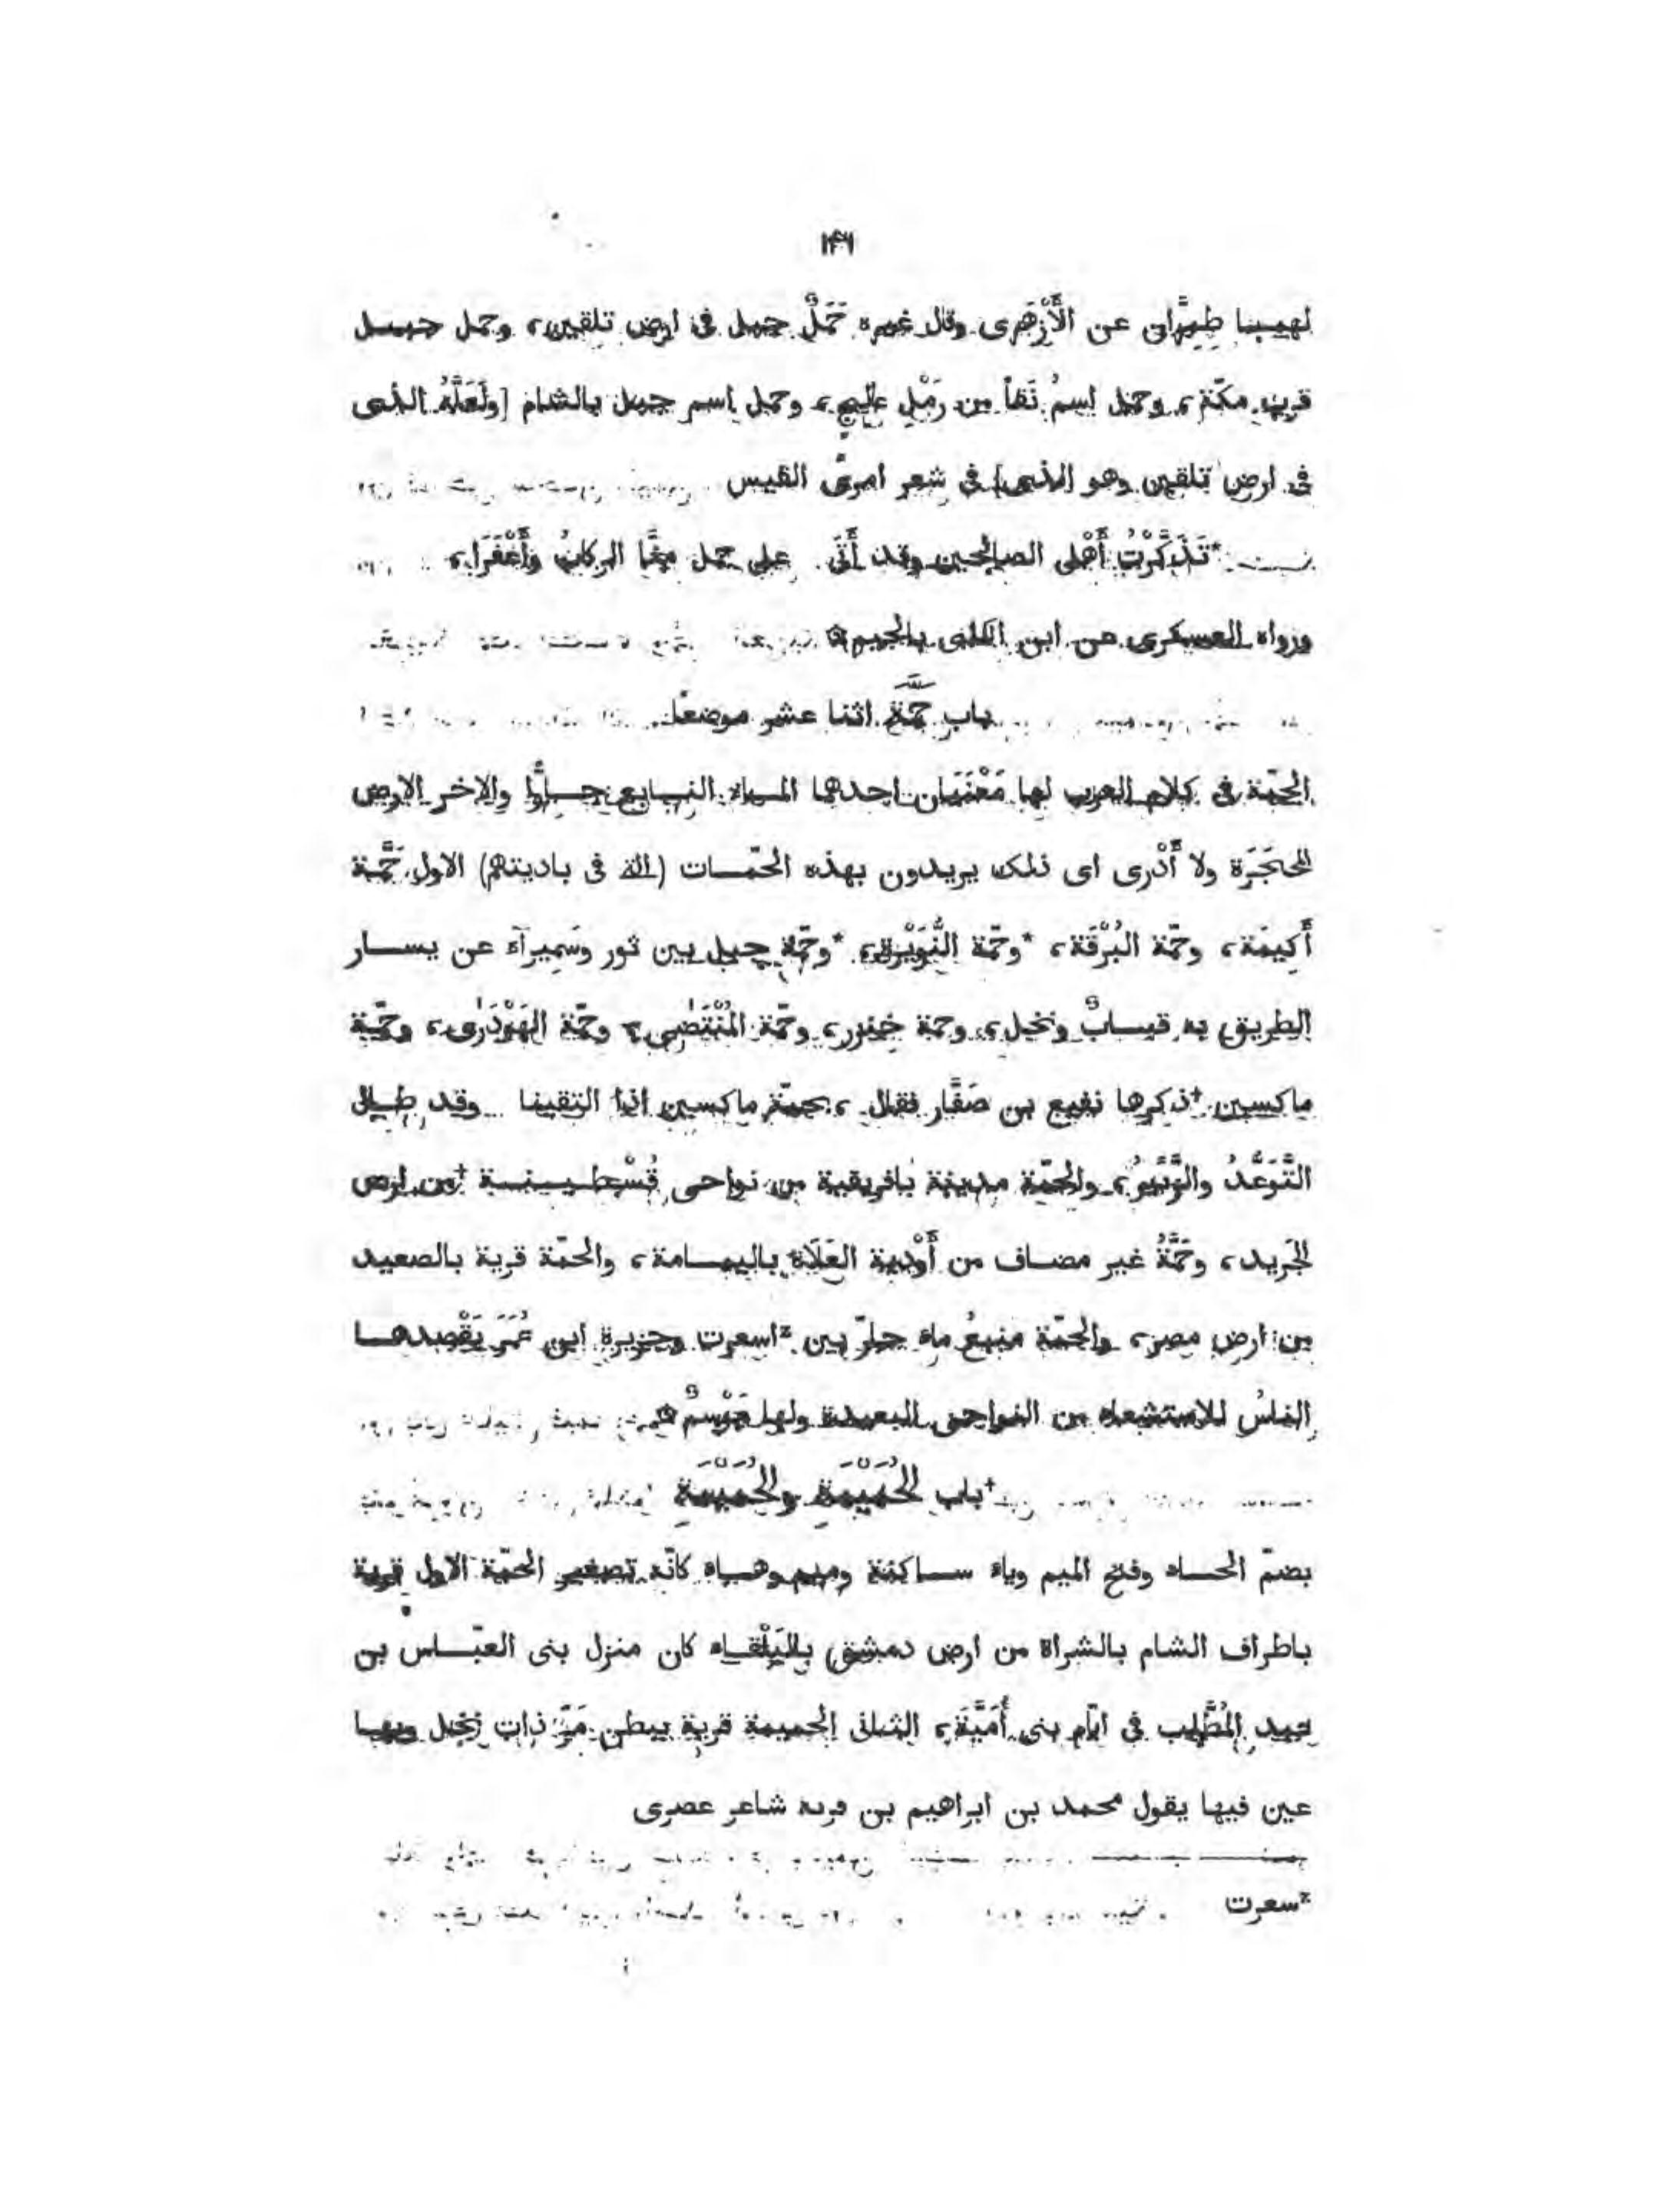 ١٤٦
لهما طِمِرَّان عن الأَزْهَرى وقال غيره حَمَلٌ جبل فى ارض بلقين، وحمل جبـل
قرب مكّة، وحمل اسمُ نَقاً من رَمْلِ عالِجٍ، وحمل اسم جبل بالشام [ولَعَلَّهُ الذى
فى ارض بلقين وهو الذى] فى شعر امرئ القيس
*تَذَكَّرْتُ أَهْلى الصالحين وقد أَتَى على حمل منَّا الركابُ وأَعْفَرَا،
ورواه العسكرى عن ابن الكلبى بالجيم ۞
باب حَمَّة اثنا عشر موضعًا
الحمّة فى كلام العرب لها مَعْنَيَان احدهما المـاء النـابع حـارًّا والاخر الارض
المحجَرَة ولا أَدْرى اى ذلك يريدون بهذه الحمّـات (الله فى باديتهم) الاول حَمَّـة
أَكِيمَة، وحمّة البُرْقَة، *وحمّة الثُّوَيْر، *وحمّة جبل بين ثور وسَميرآء عن يسـار
الطريق به قبـابٌ ونخل، وحمة خنزر، وحمّة المُنْتَضى، وحمّة الهَوْدَرى، وحمّـة
ماكسين †ذكرها نفيع بن صَفَّار فقال، بحمّة ماكسين اذا التقينا وقد طـال
التَّوَعُّدُ والزَّئِيرُ، والحمّة مدينة بافريقية من نواحى قُسْطيـنـة †من ارض
الجَريد، وحَمَّةُ غير مضاف من أَوْدية العَلَاة باليمـامة، والحمّة قرية بالصعيد
من ارض مصر، والحمّة منبعُ ماء حارّ بين ²اسعرت وجزيرة ابن عُمَرَ يَقْصدهـا
الناسُ للاستشفاء من النواحى البعيدة ولها مَوْسمٌ ۞
†باب الحُمَيْمَةِ والحُمَيْمَةِ
بضمّ الحـاء وفتح الميم وياء سـاكنة وميم وهـاء كانّه تصغير الحمّة الاول قرية
باطراف الشام بالشراة من ارض دمشق بالبَلْقـاء كان منزل بنى العبّـاس بن
عبد المُطَّلِب فى ايّام بنى أُمَيَّةَ، الثانى الحميمة قرية ببطن مَرّ ذات نخل وبهـا
عين فيها يقول محمد بن ابراهيم بن شاعر عصرى
²سعرت